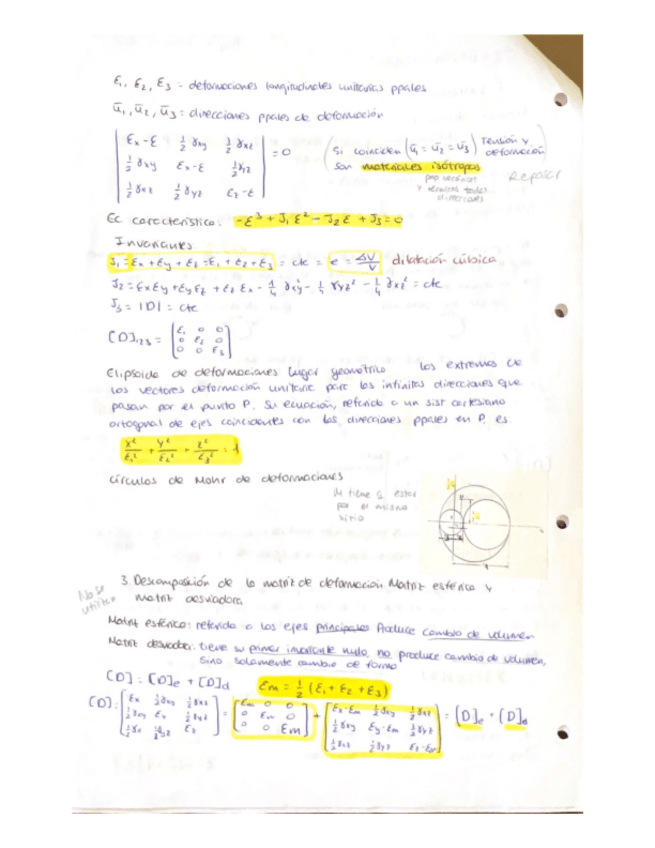 ε₁, ε₂, ε₃ = deformaciones longitudinales unitarias ppales
ū₁, ū₂, ū₃ : direcciones ppales de deformación
| εx-ε ½γxy ½γxz |
| ½γxy εx-ε ½γyz | = 0
| ½γxz ½γyz εz-ε |
Si coinciden (ū₁ = ū₂ = ū₃) Tensión y deformación
son materiales isótropos
prop mecánicas
y térmicas todas
direcciones
Repasar
Ec característica: -ε³ + J₁ε² - J₂ε + J₃ = 0
Invariantes
J₁ = εx + εy + εz = ε₁ + ε₂ + ε₃ = cte = e = ΔV/V dilatación cúbica
J₂ = εxεy + εyεz + εzεx - ¼γxy² - ¼γyz² - ¼γxz² = cte
J₃ = |D| = cte
[D]₁₂₃ = [ε₁ 0 0
0 ε₂ 0
0 0 ε₃]
Elipsoide de deformaciones Lugar geométrico los extremos de
los vectores deformación unitaria para las infinitas direcciones que
pasan por el punto P. Su ecuación, referida a un sist cartesiano
ortogonal de ejes coincidentes con las direcciones ppales en P, es
x²/ε₁² + y²/ε₂² + z²/ε₃² = 1
Círculos de Mohr de deformaciones
M tiene q estar
por el mismo
sitio
3. Descomposición de la matriz de deformación Matriz esférica y
matriz desviadora
No se
utilizan
Matriz esférica: referida a los ejes principales Produce cambio de volumen
Matriz desviador: tiene su primer invariante nulo, no produce cambio de volumen,
sino solamente cambio de forma
[D] = [D]e + [D]d εm = ½ (ε₁ + ε₂ + ε₃)
[D] = [εx ½γxy ½γxz] = [εm 0 0] + [εx-εm ½γxy ½γxz] = [D]e + [D]d
[½γxy εx ½γyz] [0 εm 0] [½γxy εy-εm ½γyz]
[½γx ½γyz εz] [0 0 εm] [½γxz ½γyz εz-εm]